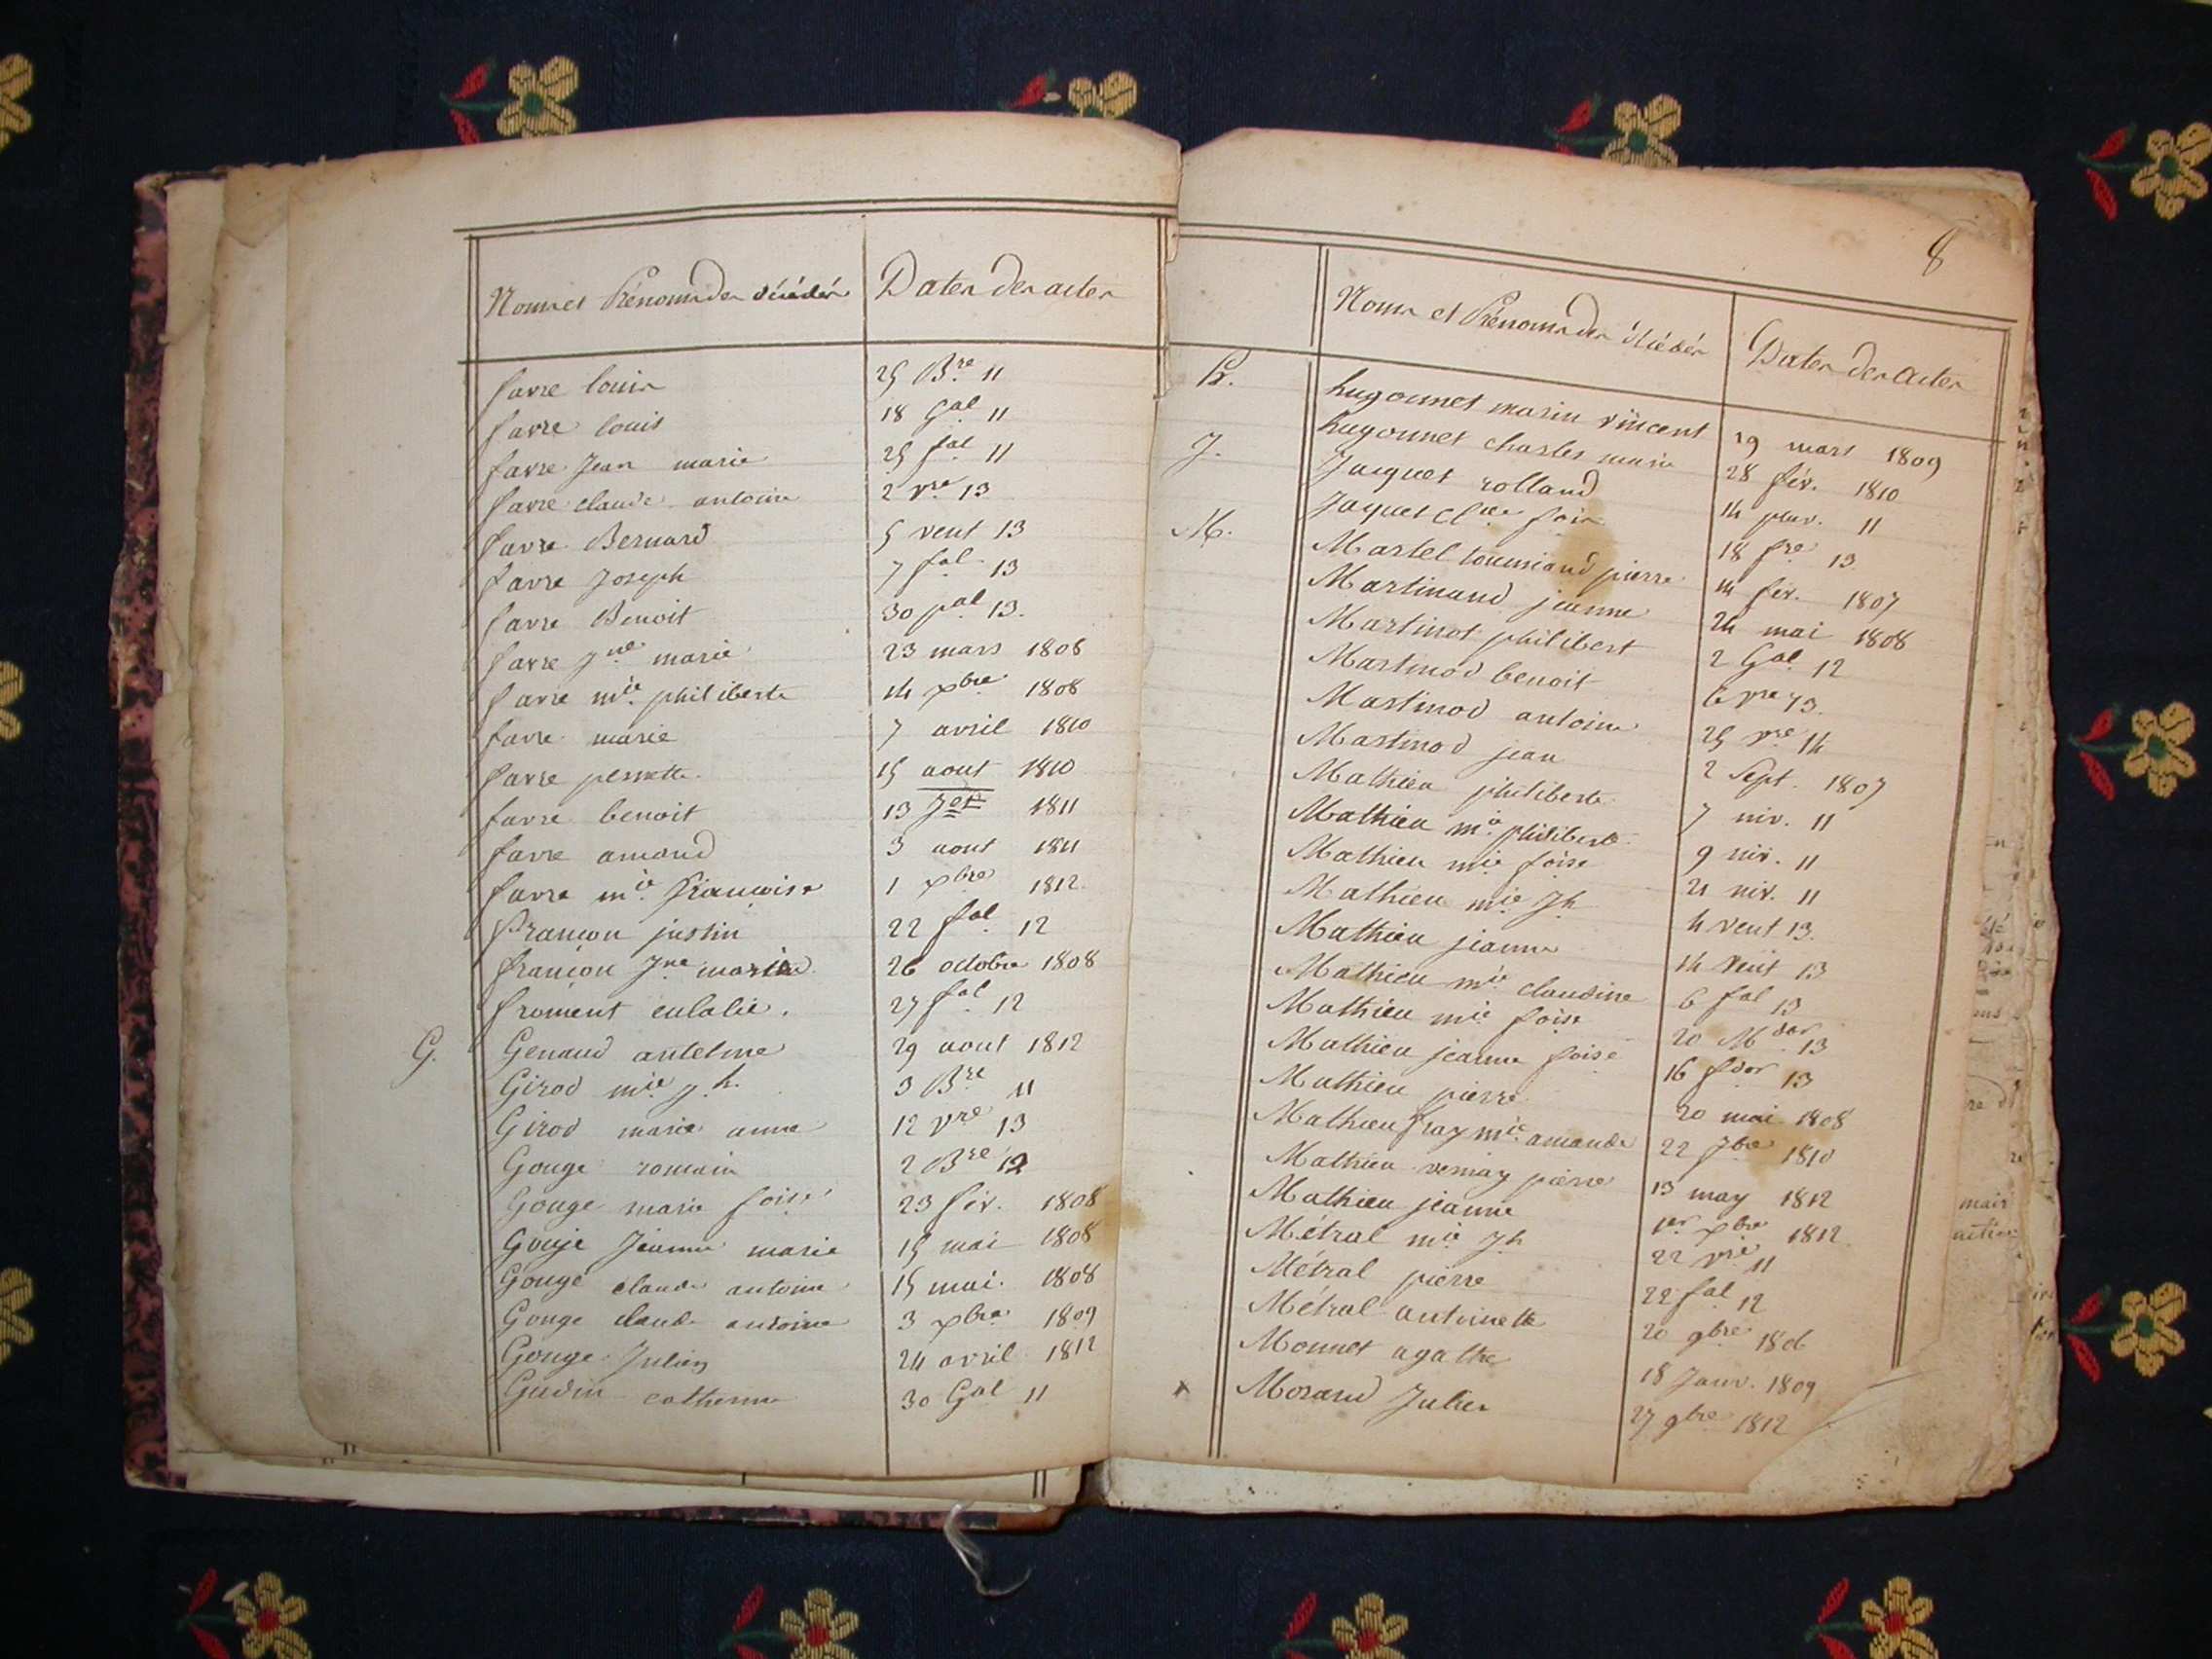 Noms et Prénoms des décédés Dates des actes
favre louis 25 B.re 11
favre louis 18 G.al 11
favre Jean marie 25 f.al 11
favre claude antoine 2 v.re 13
favre Bernard 5 vent 13
favre Joseph 7 f.al 13
favre Benoit 30 p.al 13.
favre J.ne marie 23 mars 1808
favre m.ie philiberte 14 xbre 1808
favre marie 7 avril 1810
favre perrette 15 aout 1810
favre benoit 13 1811
favre amand 3 aout 1811
favre m.ie françoise 1 xbre 1812
françon justin 22 f.al 12
françon J.ne marie 26 octobre 1808
froment eulalie. 27 f.al 12
G. Genaud antelme 29 aout 1812
Girod m.ie j.h. 3 B.re 11
Girod marie anne 12 v.re 13
Gouge romain 2 B.re 12
Gouge marie foise 23 fév. 1808
Gouje Jeanne marie 15 mai 1808
Gouge claude antoine 15 mai. 1808
Gouge claude antoine 3 xbre 1809
Gouge Julien 24 avril 1812
Gudin catherine 30 G.al 11
8
Noms et Prénoms des décédés Dates des Actes
H. hugonnet marin vincent 19 mars 1809
hugonnet charles marie 28 fév. 1810
J. Jacquet rolland 14 pluv. 11
Jaquet fois 18 f.re 13
M. Martel pierre 14 fév. 1807
Martinand jeanne 24 mai 1808
Martinot philibert 2 G.al 12
Martinod benoit 6 v.re 13.
Martinod antoine 25 v.re 14
Martinod jean 2 Sept. 1807
Mathieu philiberte 7 niv. 11
Mathieu m.ie philiberte 9 niv. 11
Mathieu m.ie foise 21 niv. 11
Mathieu m.ie Jh 4 vent 13.
Mathieu jeanne 14 vent 13
Mathieu m.ie claudine 6 f.al 13
Mathieu m.ie foise 20 M.dor 13
Mathieu jeanne foise 16 f.dor 13
Mathieu pierre 20 mai 1808
Mathieu fray m.ie amande 22 7bre 1810
Mathieu vernay pierre 13 may 1812
Mathieu jeanne 1er xbre 1812
Métral m.ie Jh 22 v.re 11
Métral pierre 22 f.al 12
Métral antoinette 20 9bre 1806
Monnet agathe 18 Janv. 1809
x Morand Julien 27 9bre 1812